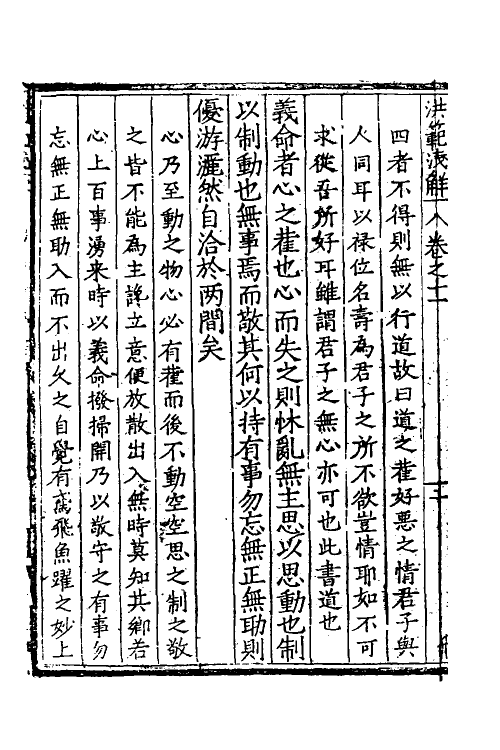 洪範淺解 卷之十一
四者不得則無以行道故曰道之權好惡之情君子與
人同耳以禄位名壽為君子之所不欲豈情耶如不可
求從吾所好耳雖謂君子之無心亦可也此書道也
義命者心之權也心而失之則怵亂無主思以思動也制
以制動也無事焉而敬其何以持有事勿忘無正無助則
優游灑然自洽於两間矣
心乃至動之物心必有權而後不動空空思之制之敬
之皆不能為主纔立意便放散出入無時莫知其鄉若
心上百事湧来時以義命撥掃開乃以敬守之有事勿
忘無正無助入而不出久之自覺有鳶飛魚躍之妙上